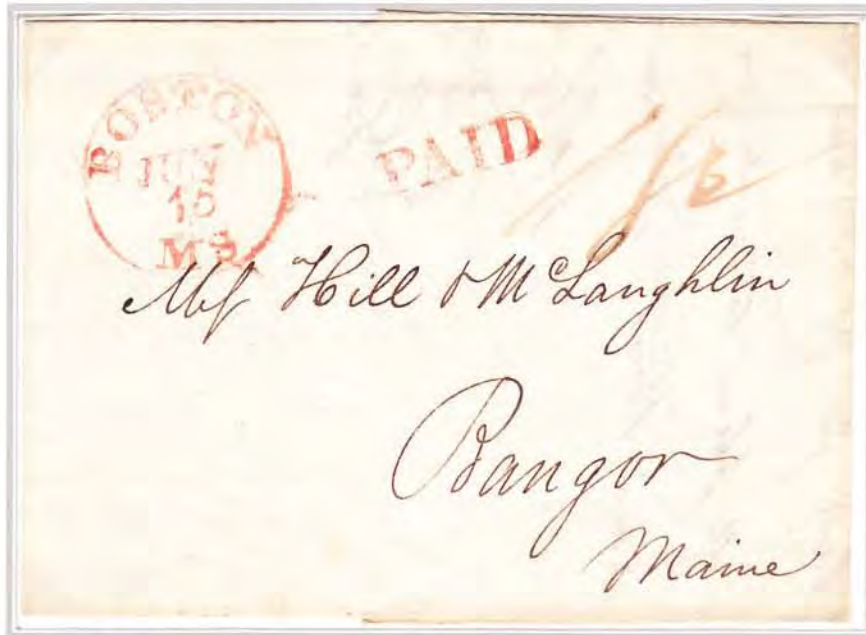 BOSTON
JUN
15
MS
PAID
Hill & McLaughlin
Bangor
Maine